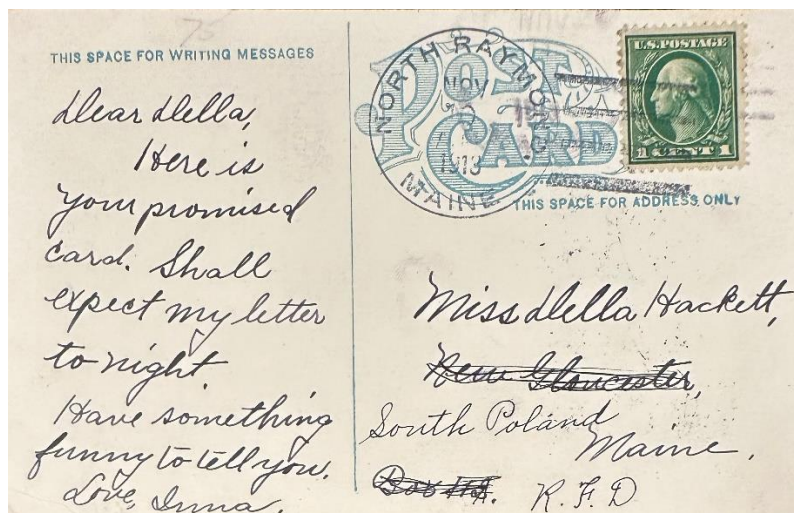 THIS SPACE FOR WRITING MESSAGES
Dear Della,
Here is
your promised
card. Shall
expect my letter
to night
Have something
funny to tell you.
Love, Inna.
POST CARD
NORTH RAYMOND.
NOV
1913
MAINE
U.S. POSTAGE
1 CENT 1
THIS SPACE FOR ADDRESS ONLY
Miss Della Hackett,
New Gloucester,
South Poland
Maine.
R.F.D